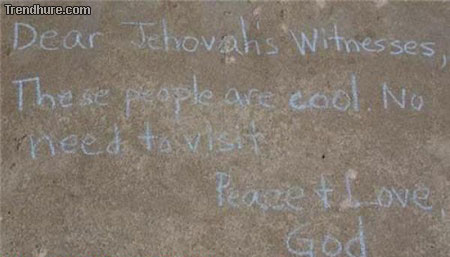 Trendhure.com
Dear Jehovah's Witnesses,
These people are cool. No
need to visit
Peace & Love,
God